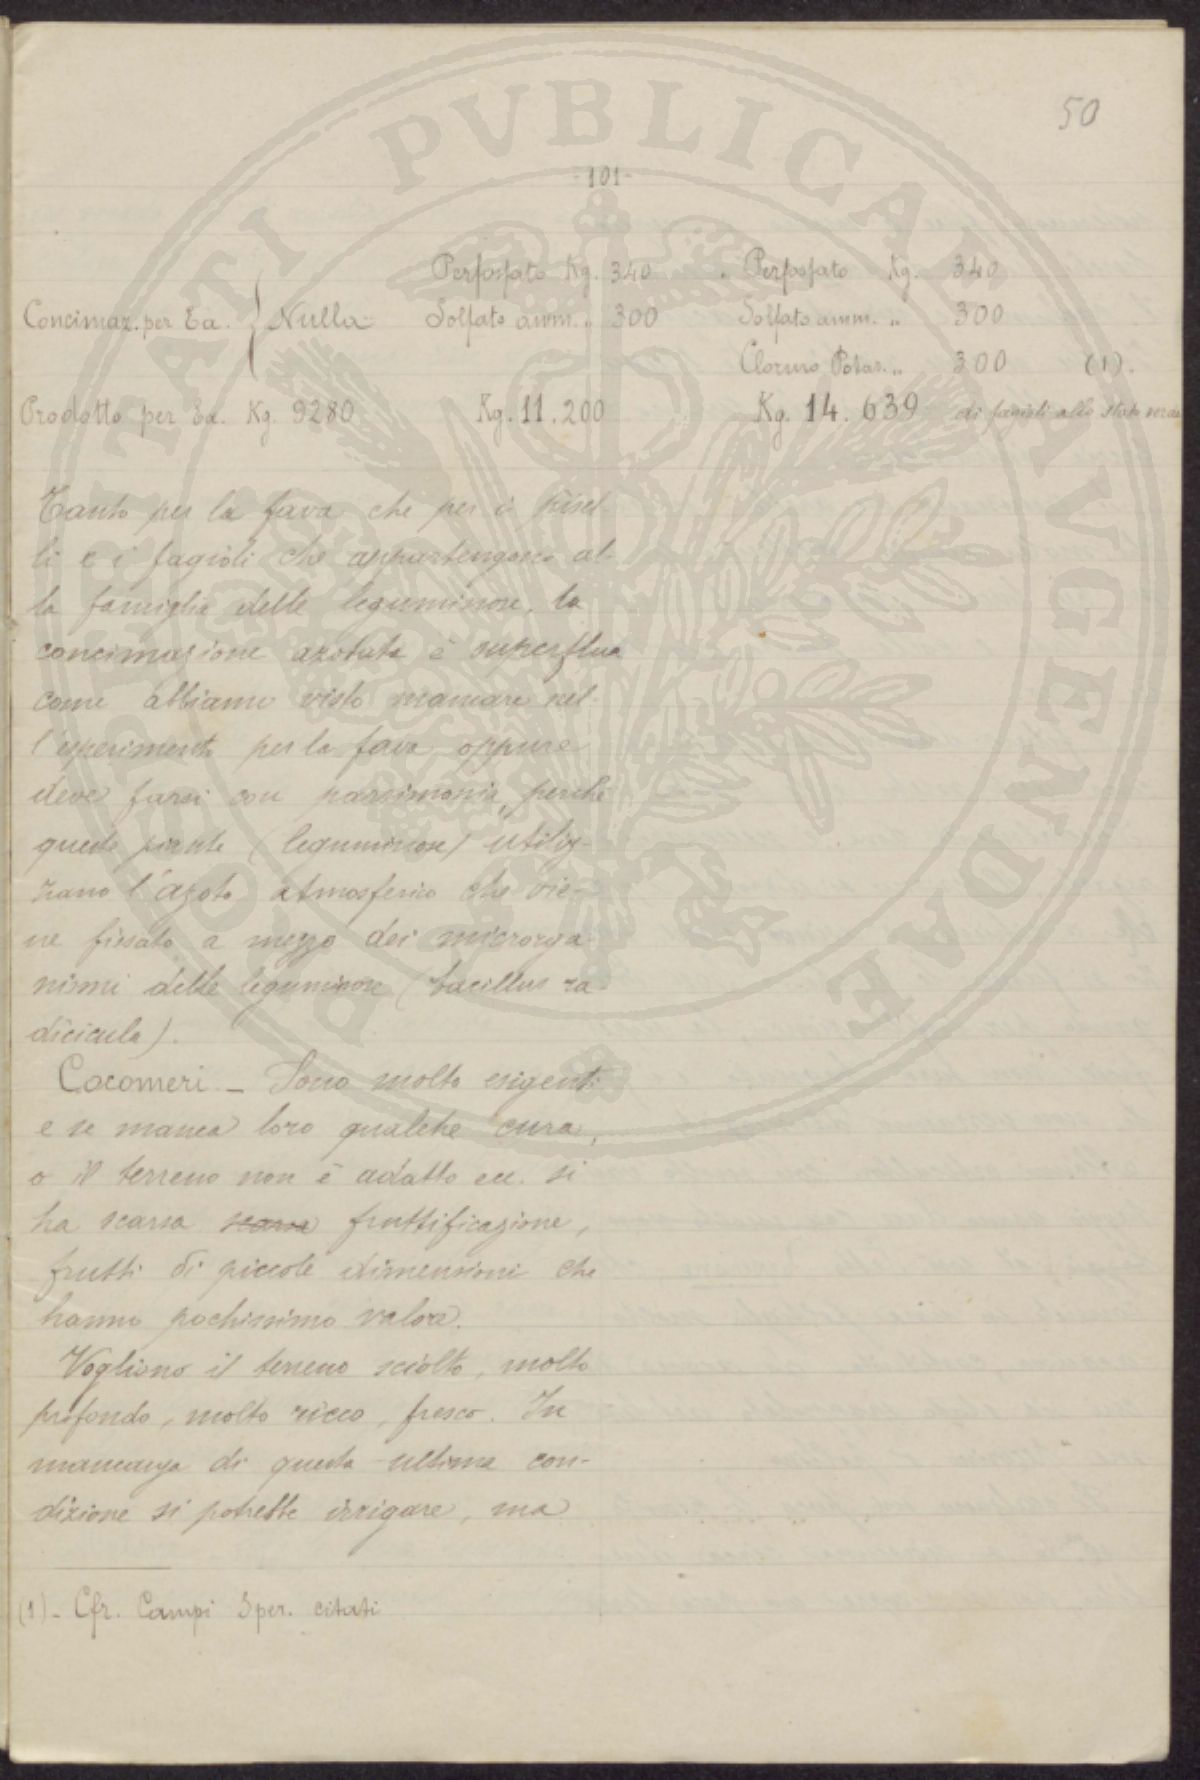 50
-101-
Perfosfato Kg. 340 " Perfosfato Kg. 340
Concimaz. per Ea. { Nulla Solfato amm. " 300 Solfato amm. " 300
Cloruro Potas. " 300 (1).
Prodotto per Ea. Kg. 9280 Kg. 11.200 Kg. 14.639 di fagioli allo stato verde
Tanto per la fava che per i pisel-
li e i fagioli che appartengono al-
la famiglia delle leguminose, la
concimazione azotata è superflua
come abbiamo visto mancare nel-
l'esperimento per la fava, oppure
deve farsi con parsimonia, perchè
queste piante (leguminose) utiliz-
zano l'azoto atmosferico che vie-
ne fissato a mezzo dei microrga-
nismi delle leguminose (bacillus ra-
dicicula).
Cocomeri - Sono molto esigenti
e se manca loro qualche cura,
o il terreno non è adatto ecc. si
ha scarsa scarsa fruttificazione,
frutti di piccole dimensioni che
hanno pochissimo valore.
Vogliono il terreno sciolto, molto
profondo, molto ricco, fresco. In
mancanza di questa ultima con-
dizione si potrebbe irrigare, ma
(1) - Cfr. Campi Sper. citati
PROSPERITATI PVBLICAE AVGENDAE